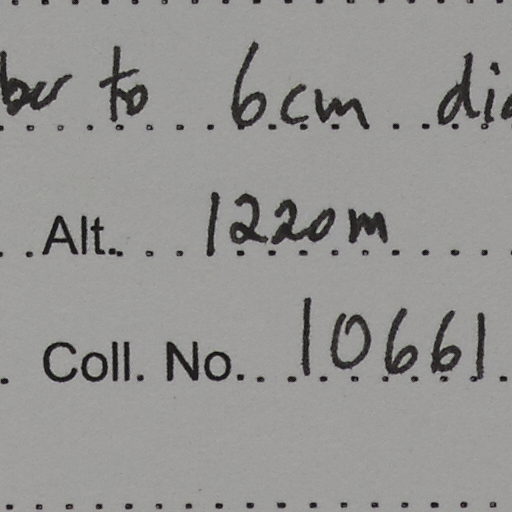 to 6cm
Alt. 1220m
Coll. No. 10661